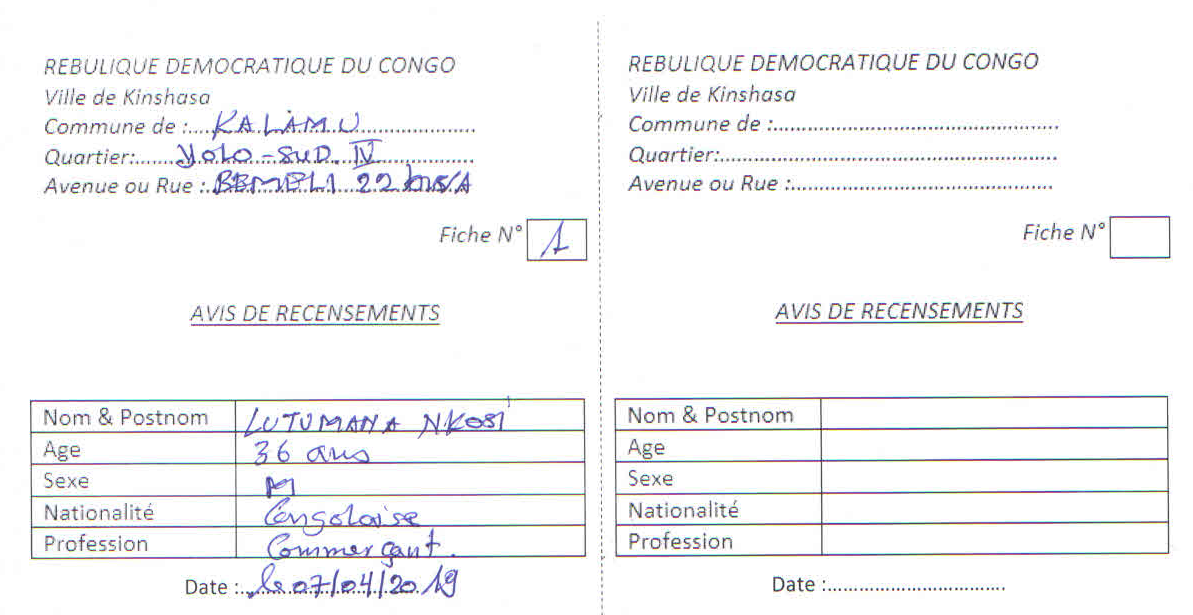 REBULIQUE DEMOCRATIQUE DU CONGO
Ville de Kinshasa
Commune de :....KALAMU....................
Quartier:......YOLO-SUD.IV..................
Avenue ou Rue : 22 bis/A
Fiche N° 1
AVIS DE RECENSEMENTS
Nom & Postnom LUTUMANA NKOSI
Age 36 ans
Sexe M
Nationalité Congolaise
Profession Commerçant.
Date :..le 07/04/2019
REBULIQUE DEMOCRATIQUE DU CONGO
Ville de Kinshasa
Commune de :................................................
Quartier:.........................................................
Avenue ou Rue :............................................
Fiche N°
AVIS DE RECENSEMENTS
Nom & Postnom
Age
Sexe
Nationalité
Profession
Date :..............................